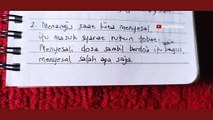 2. Menangis saat kita menyesal
itu masuk syarat rukun tobat.
Menyesali dosa sambil berdoa itu bagus,
menyesal salah apa saja